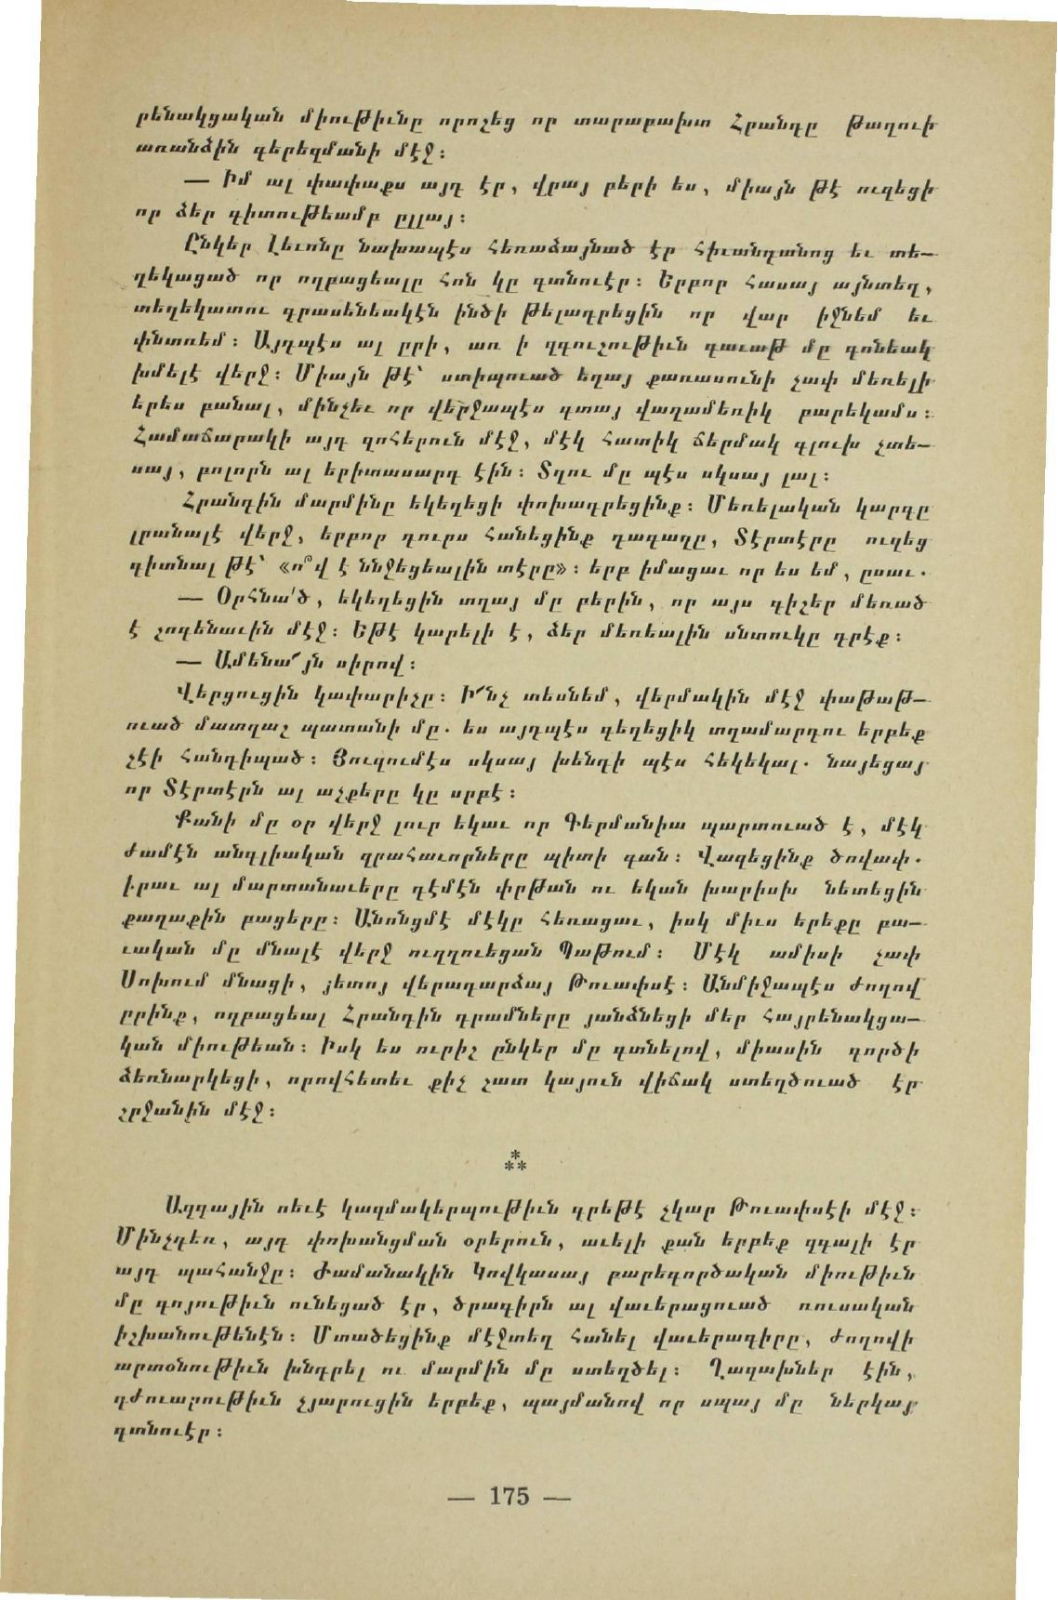 րենակցական միութիւնը որոշեց որ տարաբախտ Հրանդը թաղուի
առանձին գերեզմանի մէջ։
— Իմ ալ փափաքս այդ էր, վրայ բերի ես, միայն թէ ուզեցի
որ ձեր գիտութեամբ ըլլայ։
Ընկեր Լեւոնը նախապէս հեռաձայնած էր հիւանդանոց եւ տե–
ղեկացած որ ողբացեալը հոն կը գտնուէր։ Երբոր հասայ այնտեղ,
տեղեկատու գրասենեակէն ինծի թելադրեցին որ վար իջնեմ եւ
փնտռեմ։ Այդպէս ալ ըրի, առ ի զգուշութիւն գաւաթ մը գոնեակ
խմելէ վերջ։ Միայն թէ՝ ստիպուած եղայ քառասունի չափ մեռելի
երես բանալ, մինչեւ որ վերջապէս գտայ վաղամեռիկ բարեկամս։
Համաճարակի այդ զոհերուն մէջ, մէկ հատիկ ճերմակ գլուխ չտե–
սայ, բոլորն ալ երիտասարդ էին։ Տղու մը պէս սկսայ լալ։
Հրանդին մարմինը եկեղեցի փոխադրեցինք։ Մեռելական կարգը
լրանալէ վերջ, երբոր դուրս հանեցինք դագաղը, Տէրտէրը ուզեց
գիտնալ թէ՝ «ո՞վ է ննջեցեալին տէրը»։ երբ իմացաւ որ ես եմ, ըսաւ.
— Օրհնա՛ծ, եկեղեցին տղայ մը բերին, որ այս գիշեր մեռած
է շոգենաւին մէջ։ Եթէ կարելի է, ձեր մեռեալին սնտուկը դրէք։
— Ամենա՜յն սիրով։
Վերցուցին կափարիչը։ Ի՜նչ տեսնեմ, վերմակին մէջ փաթաթ–
ուած մատղաշ պատանի մը. ես այդպէս գեղեցիկ տղամարդու երբեք
չէի հանդիպած։ Յուզումէս սկսայ խենդի պէս հեկեկալ. նայեցայ
որ Տէրտէրն ալ աչքերը կը սրբէ։
Քանի մը օր վերջ լուր եկաւ որ Գերմանիա պարտուած է, մէկ
ժամէն անգլիական զրահաւորները պիտի գան։ Վազեցինք ծովափ.
իրաւ ալ մարտանաւերը դէմէն փրթան ու եկան խարիսխ նետեցին
քաղաքին բացերը։ Անոնցմէ մէկը հեռացաւ, իսկ միւս երեքը բա–
ւական մը մնալէ վերջ ուղղուեցան Պաթում։ Մէկ ամիսի չափ
Սոխում մնացի, յետոյ վերադարձայ Թուափսէ։ Անմիջապէս ժողով
ըրինք, ողբացեալ Հրանդին դրամները յանձնեցի մեր հայրենակցա–
կան միութեան։ Իսկ ես ուրիշ ընկեր մը գտնելով, միասին գործի
ձեռնարկեցի, որովհետեւ քիչ շատ կայուն վիճակ ստեղծուած էր
շրջանին մէջ։
⁂
Ազգային ոեւէ կազմակերպութիւն գրեթէ չկար Թուափսէի մէջ։
Մինչդեռ, այդ փոխանցման օրերուն, աւելի քան երբեք զգալի էր
այդ պահանջը։ Ժամանակին Կովկասայ բարեգործական միութիւն
մը գոյութիւն ունեցած էր, ծրագիրն ալ վաւերացուած ռուսական
իշխանութենէն։ Մտածեցինք մէջտեղ հանել վաւերագիրը, ժողովի
արտօնութիւն խնդրել ու մարմին մը ստեղծել։ Ղազախներ էին,
դժուարութիւն չյարուցին երբեք, պայմանով որ սպայ մը ներկայ
գտնուէր։
— 175 —